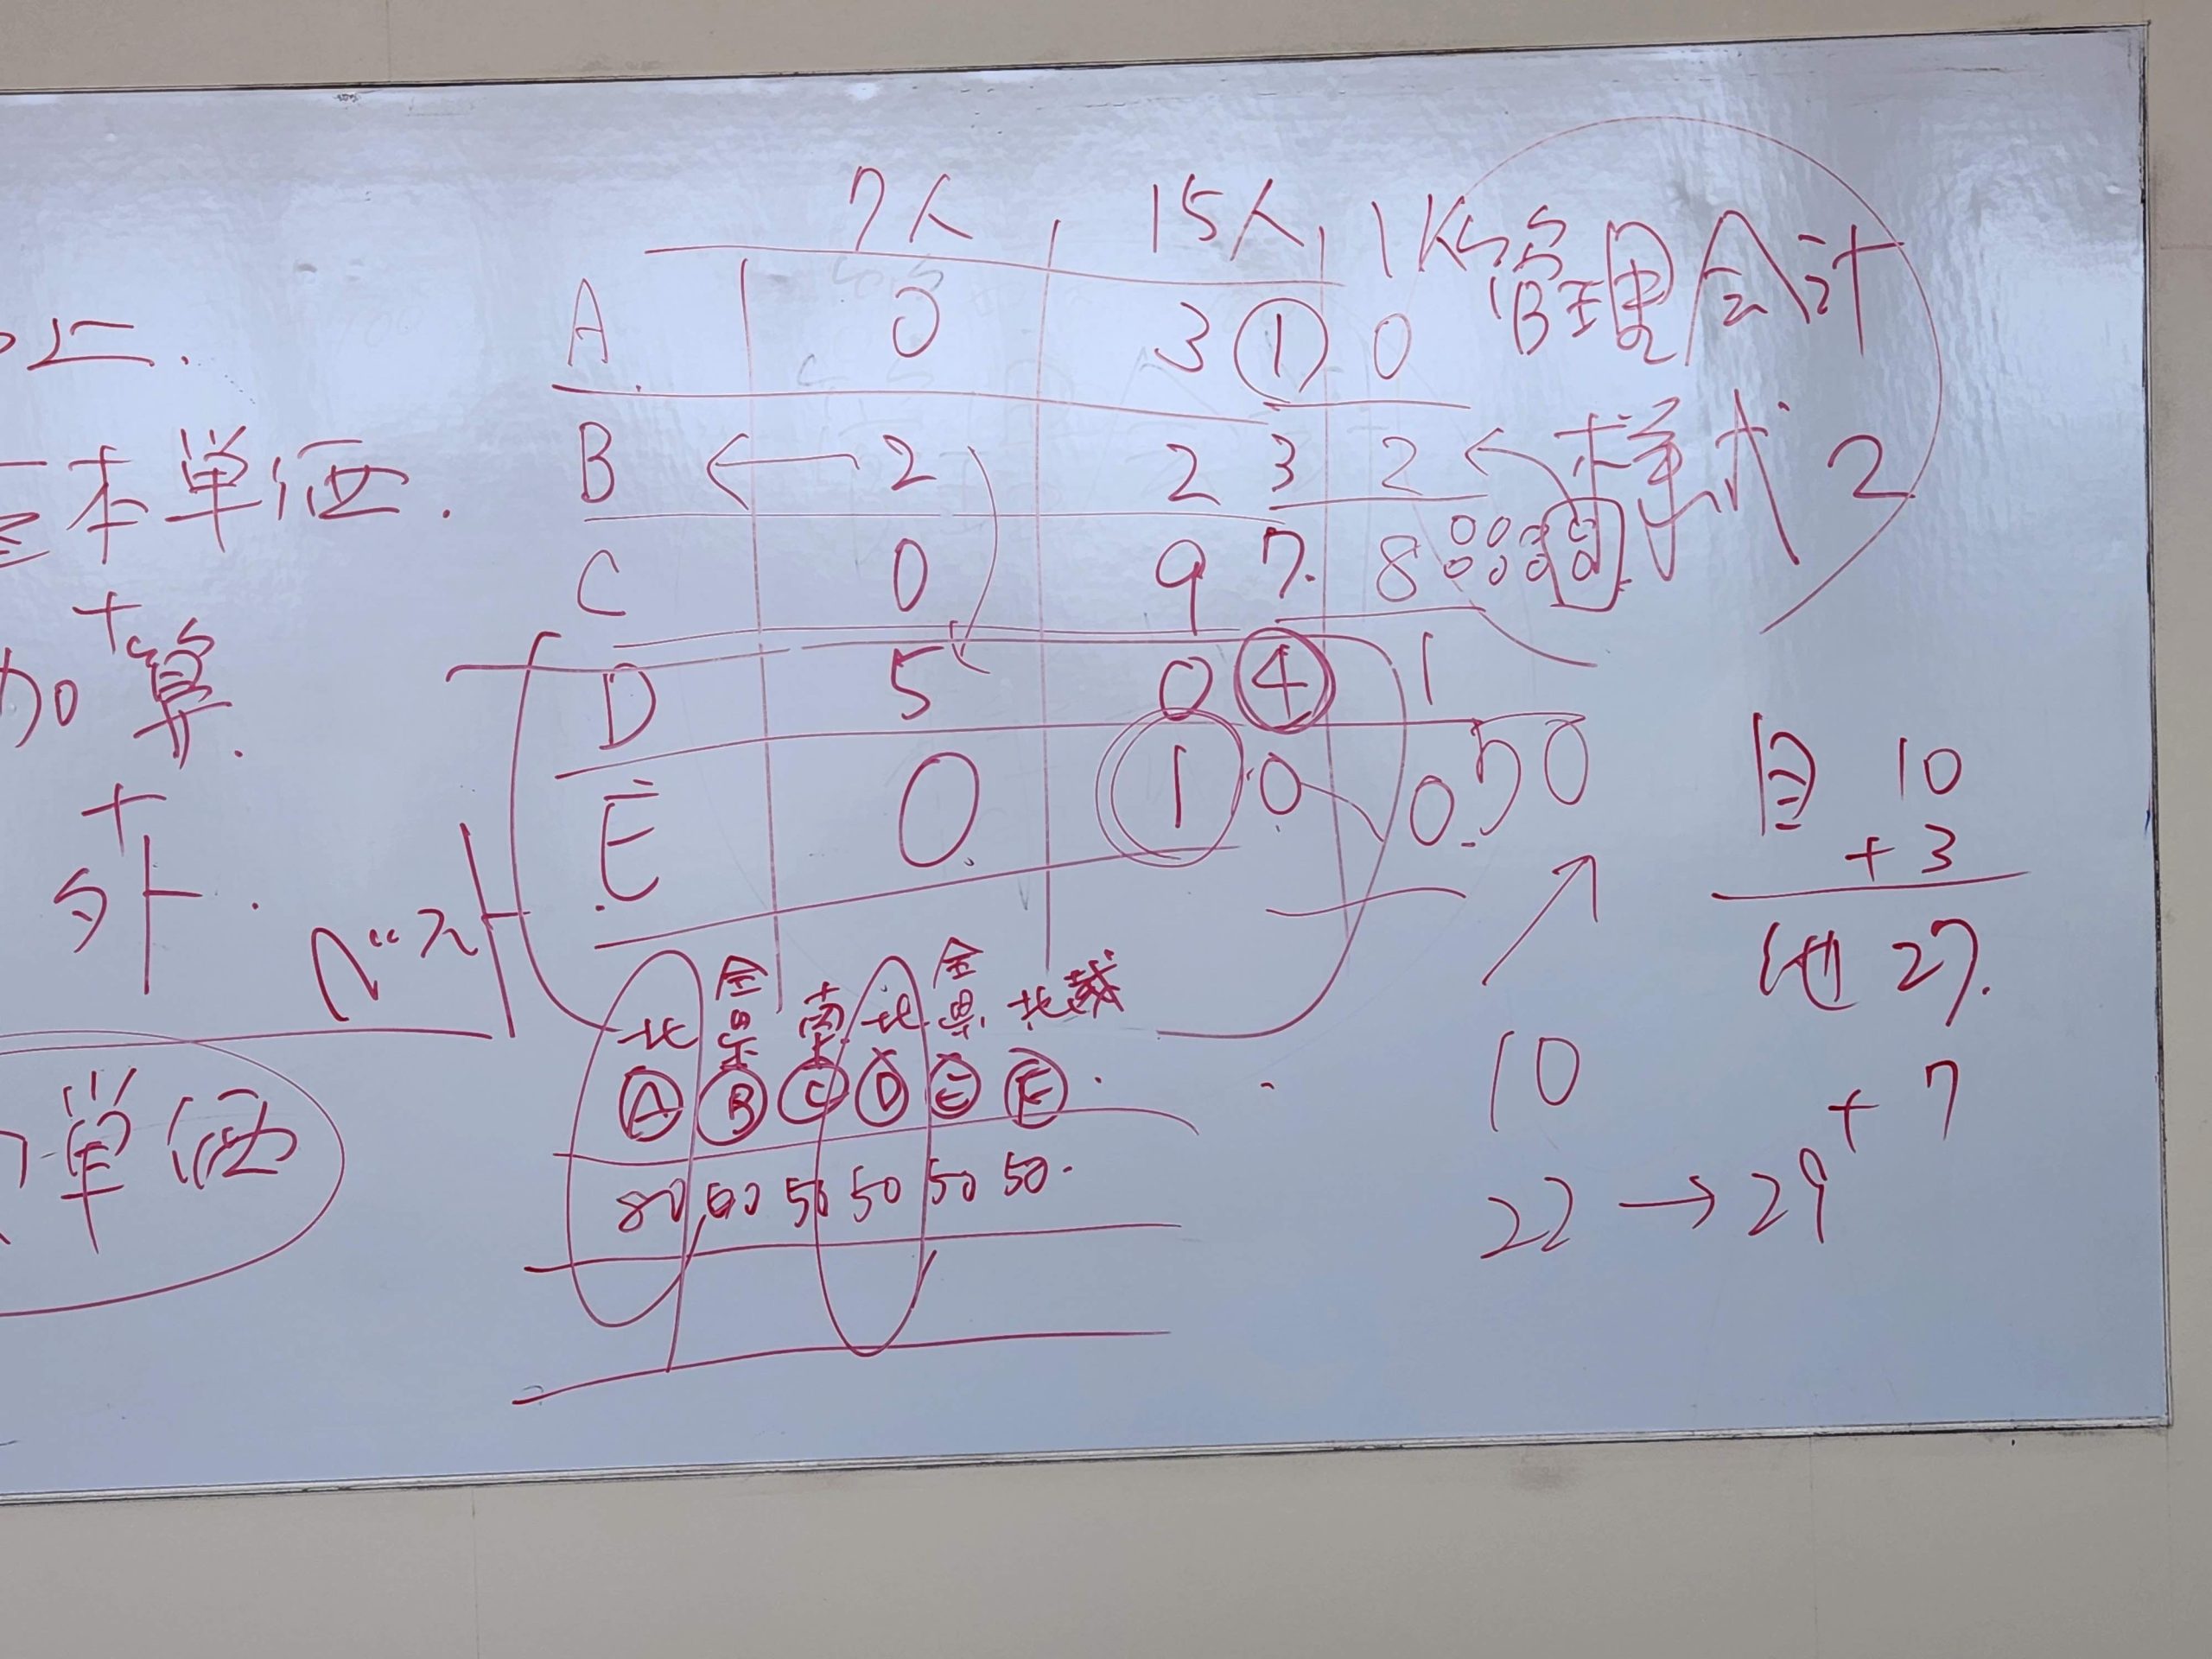 7人 15人
管理会計
A 0 3 ① 0
B ← 2 2 3 2 ← 様式2
C 0 9 7. 8
D 5 0 ④ 1
E 0. ① 0 0.
50
本単価.
+
加算.
+
外.
単価
北 全県 南 北 全県 北 越
Ⓐ Ⓑ Ⓒ Ⓓ Ⓔ Ⓕ
80 50 50 50 50 50.
自 10
+3
他 27.
10
+7
22→29